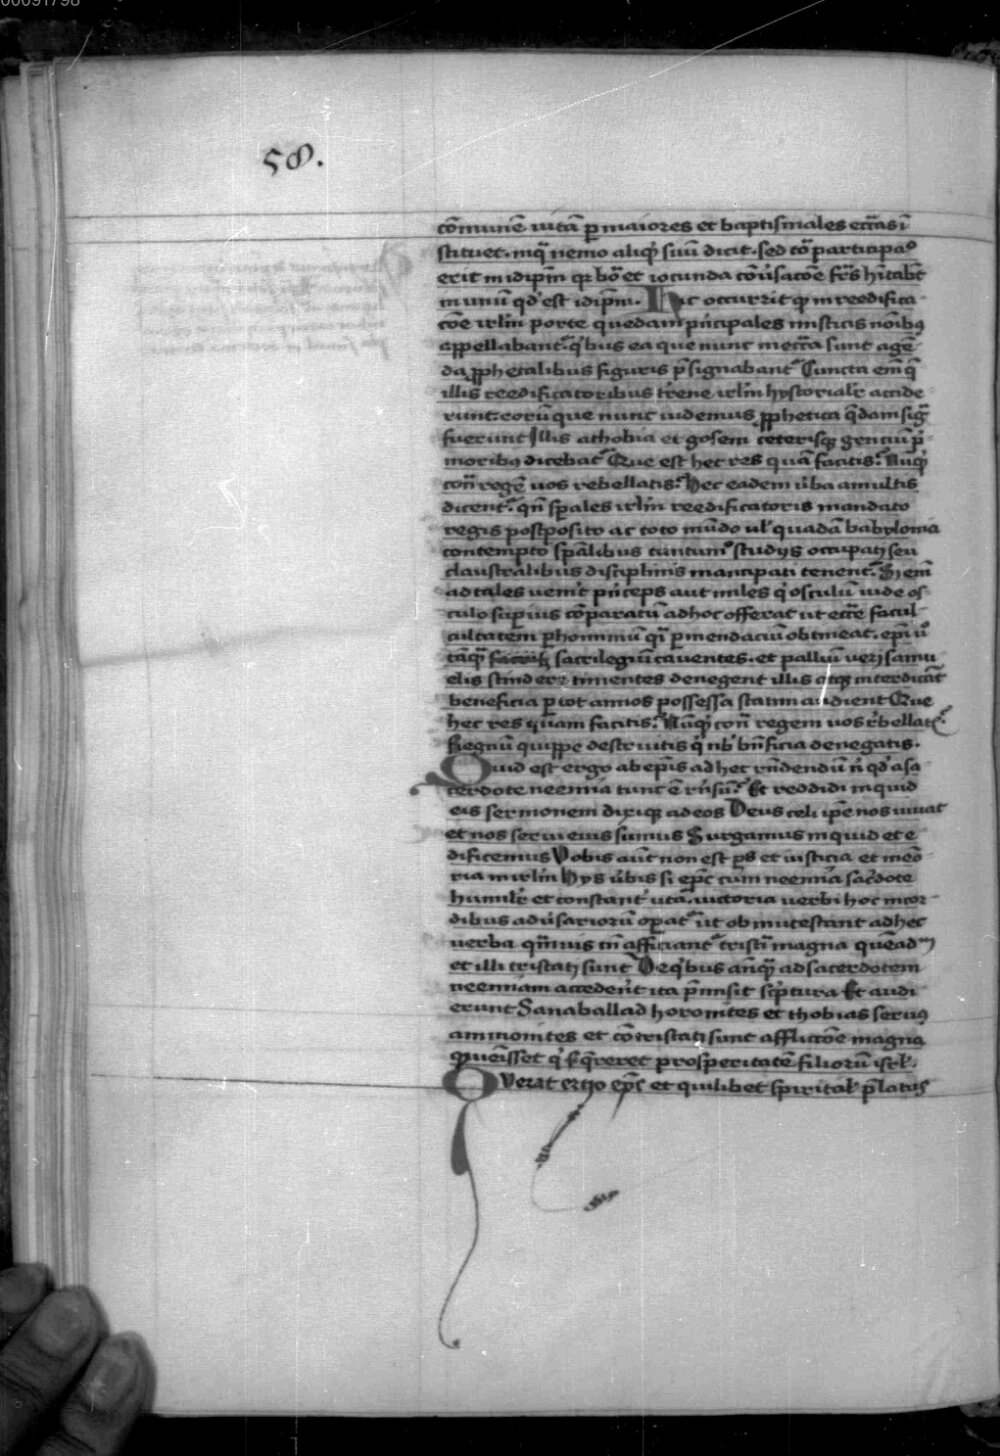 00091798
58.
cōmunē uitā ꝑ maiores et baptismales eccl̄as ī
stituet. in q̄ nemo aliqd̓ suū dicit. sed cō participao͛
erit in idipm̄ qꝛ bo᷑ et iocunda cōūsacōe fr̄s hītabūt
in unū qd̓ est idipm̄. Hic occurrit ꝙ in reedifica
cōe irlm̄ porte quedam pͥncipales misticis noībꝰ
appellabant᷑. qͥbus ea que nunc in eccl̄a sunt agē
da ꝓphetalibus figuris p̄signabant᷑ Cuncta em̄ q̄
illis reedificatoribus tr̄ene irlm̄ hystorialit̓ accide
runt. eorū que nunc uidemus ꝓphetica q̄dam sig̃
fuerunt Illis a thobia et gosem ceterisqꝫ genciū pͥ
moribꝰ dicebat᷑ Que est hec res quā facitis? Nūqͥd
cont̄ regē uos rebellatis? Hec eadem ūba a multis
dicent᷑. qn̄ sp̄ales irlm̄ reedificatoris mandato
regis postposito ac toto mūdo ul̓ quadā babylonia
contempto sp̄alibus tantumº studijs occupati seu
claustralibus disciplinis mancipati tenent᷑. Si em̄
ad tales uenit̓ pͥnceps aut miles qͥ osculū iude os
culo supius cōparatū ad hoc offerat ut eccl̄e facul
cultatem ꝑ hominiū qͣ ꝑ mendaciū obtineat. epī uº
tāqͣ sacrilegiū cauentes. et palliū ueri samu
elis scindere timentes denegent illis atqꝫ interdicāt
beneficia ꝑ tot annos possessa statim audient Que
hec res quam facitis? Nūqͥd cont̄ regem uos r̓bellat᷑?
Regnū quippe destruitis qͥ nb̓ bn̄ficia denegatis.
Quid est ergo ab epīs ad hec rn̄dendū n̓ qd̓ a sa
cerdote neemia tunc ē rn̄sū? Et reddidi inquid
eis sermonem dixiqꝫ ad eos Deus celi ipe nos iuuat
et nos serui eius sumus Surgamus inquid et e
dificemus Vobis aūt non est ps et iusticia et meo᷑
ria in irlm̄ Hijs ūbis si epc̄ cum neemia sac̓dote
humilit̓ et constant̓ utat᷑. uictoria uerbi hoc in cor
dibus adūsariorū oꝑat᷑ ut obmutescant ad hec
uerba qͣmuis tn̄ afficiant᷑ tristiā magna quēadm̄
et illi tristati sunt De qͥbus anqͣ ad sacerdotem
neemiam accederēt ita p̄misit scͥptura Et audi
erunt Sanaballad horonites et thobias seruꝰ
ammonites et cōtristati sunt afflictōe magna
ꝙ uēisset qͥ q̄reret prosperitatē filiorū isrl̓.
Querat ergo epc̄ et quilibet spiritał p̄latus